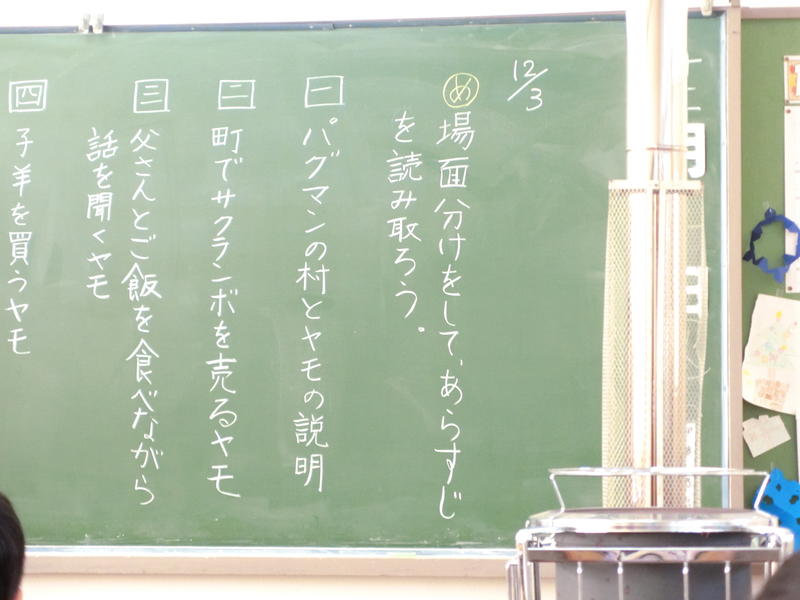 12/3
め 場面分けをして、あらすじ
を読み取ろう。
一 パグマンの村とヤモの説明
二 町でサクランボを売るヤモ
三 父さんとご飯を食べながら
話を聞くヤモ
四 子羊を買うヤモ
月
日